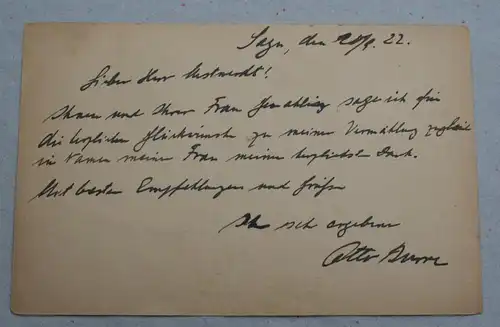 den 22.
Lieber Herr
Ihnen und Ihrer Frau Gemahlin sage ich für
die herzlichen Glückwünsche zu meiner Vermählung zugleich
im Namen meiner Frau meinen herzlichsten Dank.
Mit besten Empfehlungen und Grüßen
Ihr sehr ergebener
Otto